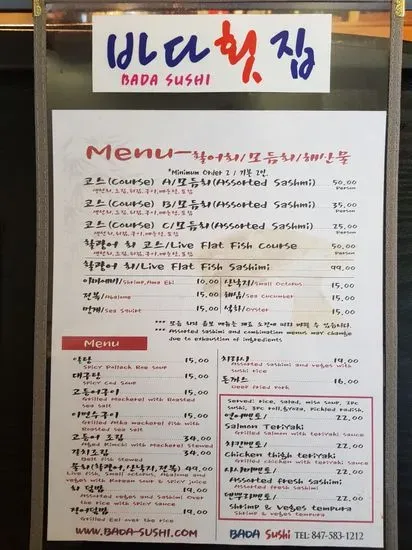 바다횟집
BADA SUSHI
Menu-활어회/모듬회/해산물
*Minimum Order 2 / 기본 2인.
코스 (Course) A/모듬회(Assorted Sashmi) 50.00
Person
코스 (Course) B/모듬회(Assorted Sashmi) 35.00
Person
코스 (Course) C/모듬회(Assorted Sashmi) 25.00
Person
활광어 회 코스/Live Flat Fish Course 50.00
Person
활광어 회/Live Flat Fish Sashimi 99.00
아마에비/Shrimp,Ama Ebi 10.00
전복/Abalone 15.00
멍게/Sea Squirt 15.00
산낙지/Small Octopus 15.00
해삼/Sea Cucumber 15.00
석화/Oyster 15.00
*** Assorted sashimi and combination menus may change
due to exhaustion of ingredients
Menu
알탕 15.00
Spicy Pollack Roe soup
대구탕 15.00
Spicy Cod Soup
고등어구이 15.00
Grilled Mackerel with Roasted
sea salt
이면수구이 15.00
Grilled Atka mackerel fish with
Roasted sea salt
고등어 조림 34.00
Aged Kimchi with Mackerel stewed
갈치조림 34.00
Belt fish stewed
물회(활광어,산낙지,전복) 49.00
Live fish, Small octopus, Abalone and
vegges with Korean soup & spicy juice
회 덮밥 19.00
Assorted vegges and Sashimi Over
the rice with spicy juice
장어덮밥 19.00
Grilled Eel over the rice
치라시 19.00
Assorted sashimi and veges with
sushi rice
돈까스 16.00
Deep fried pork
Served: rice, salad, miso soup, 2pc
sushi, 3pc roll,gyoza, pickled radish,
연어벤또/ 22.00
Salmon Teriyaki
Grilled salmon with teriyaki sauce
치킨벤또/ 22.00
Chicken thigh teriyaki
Grilled chicken with teriyaki sauce
사시미벤또/ 22.00
Assorted fresh sashimi
Assorted fresh sashimi
덴뿌라벤또/ 22.00
Shrimp & Vegges tempura
Shrimp & vegges tempura
WWW.BADA-SUSHI.COM
BADA Sushi TEL: 847-583-1212